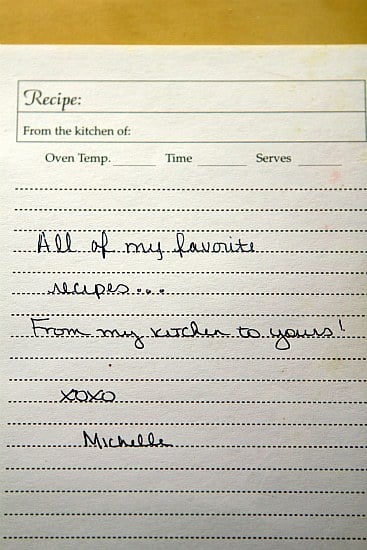 Recipe:
From the kitchen of:
Oven Temp. Time Serves
All of my favorite
recipes...
From my kitchen to yours!
xoxo
Michelle